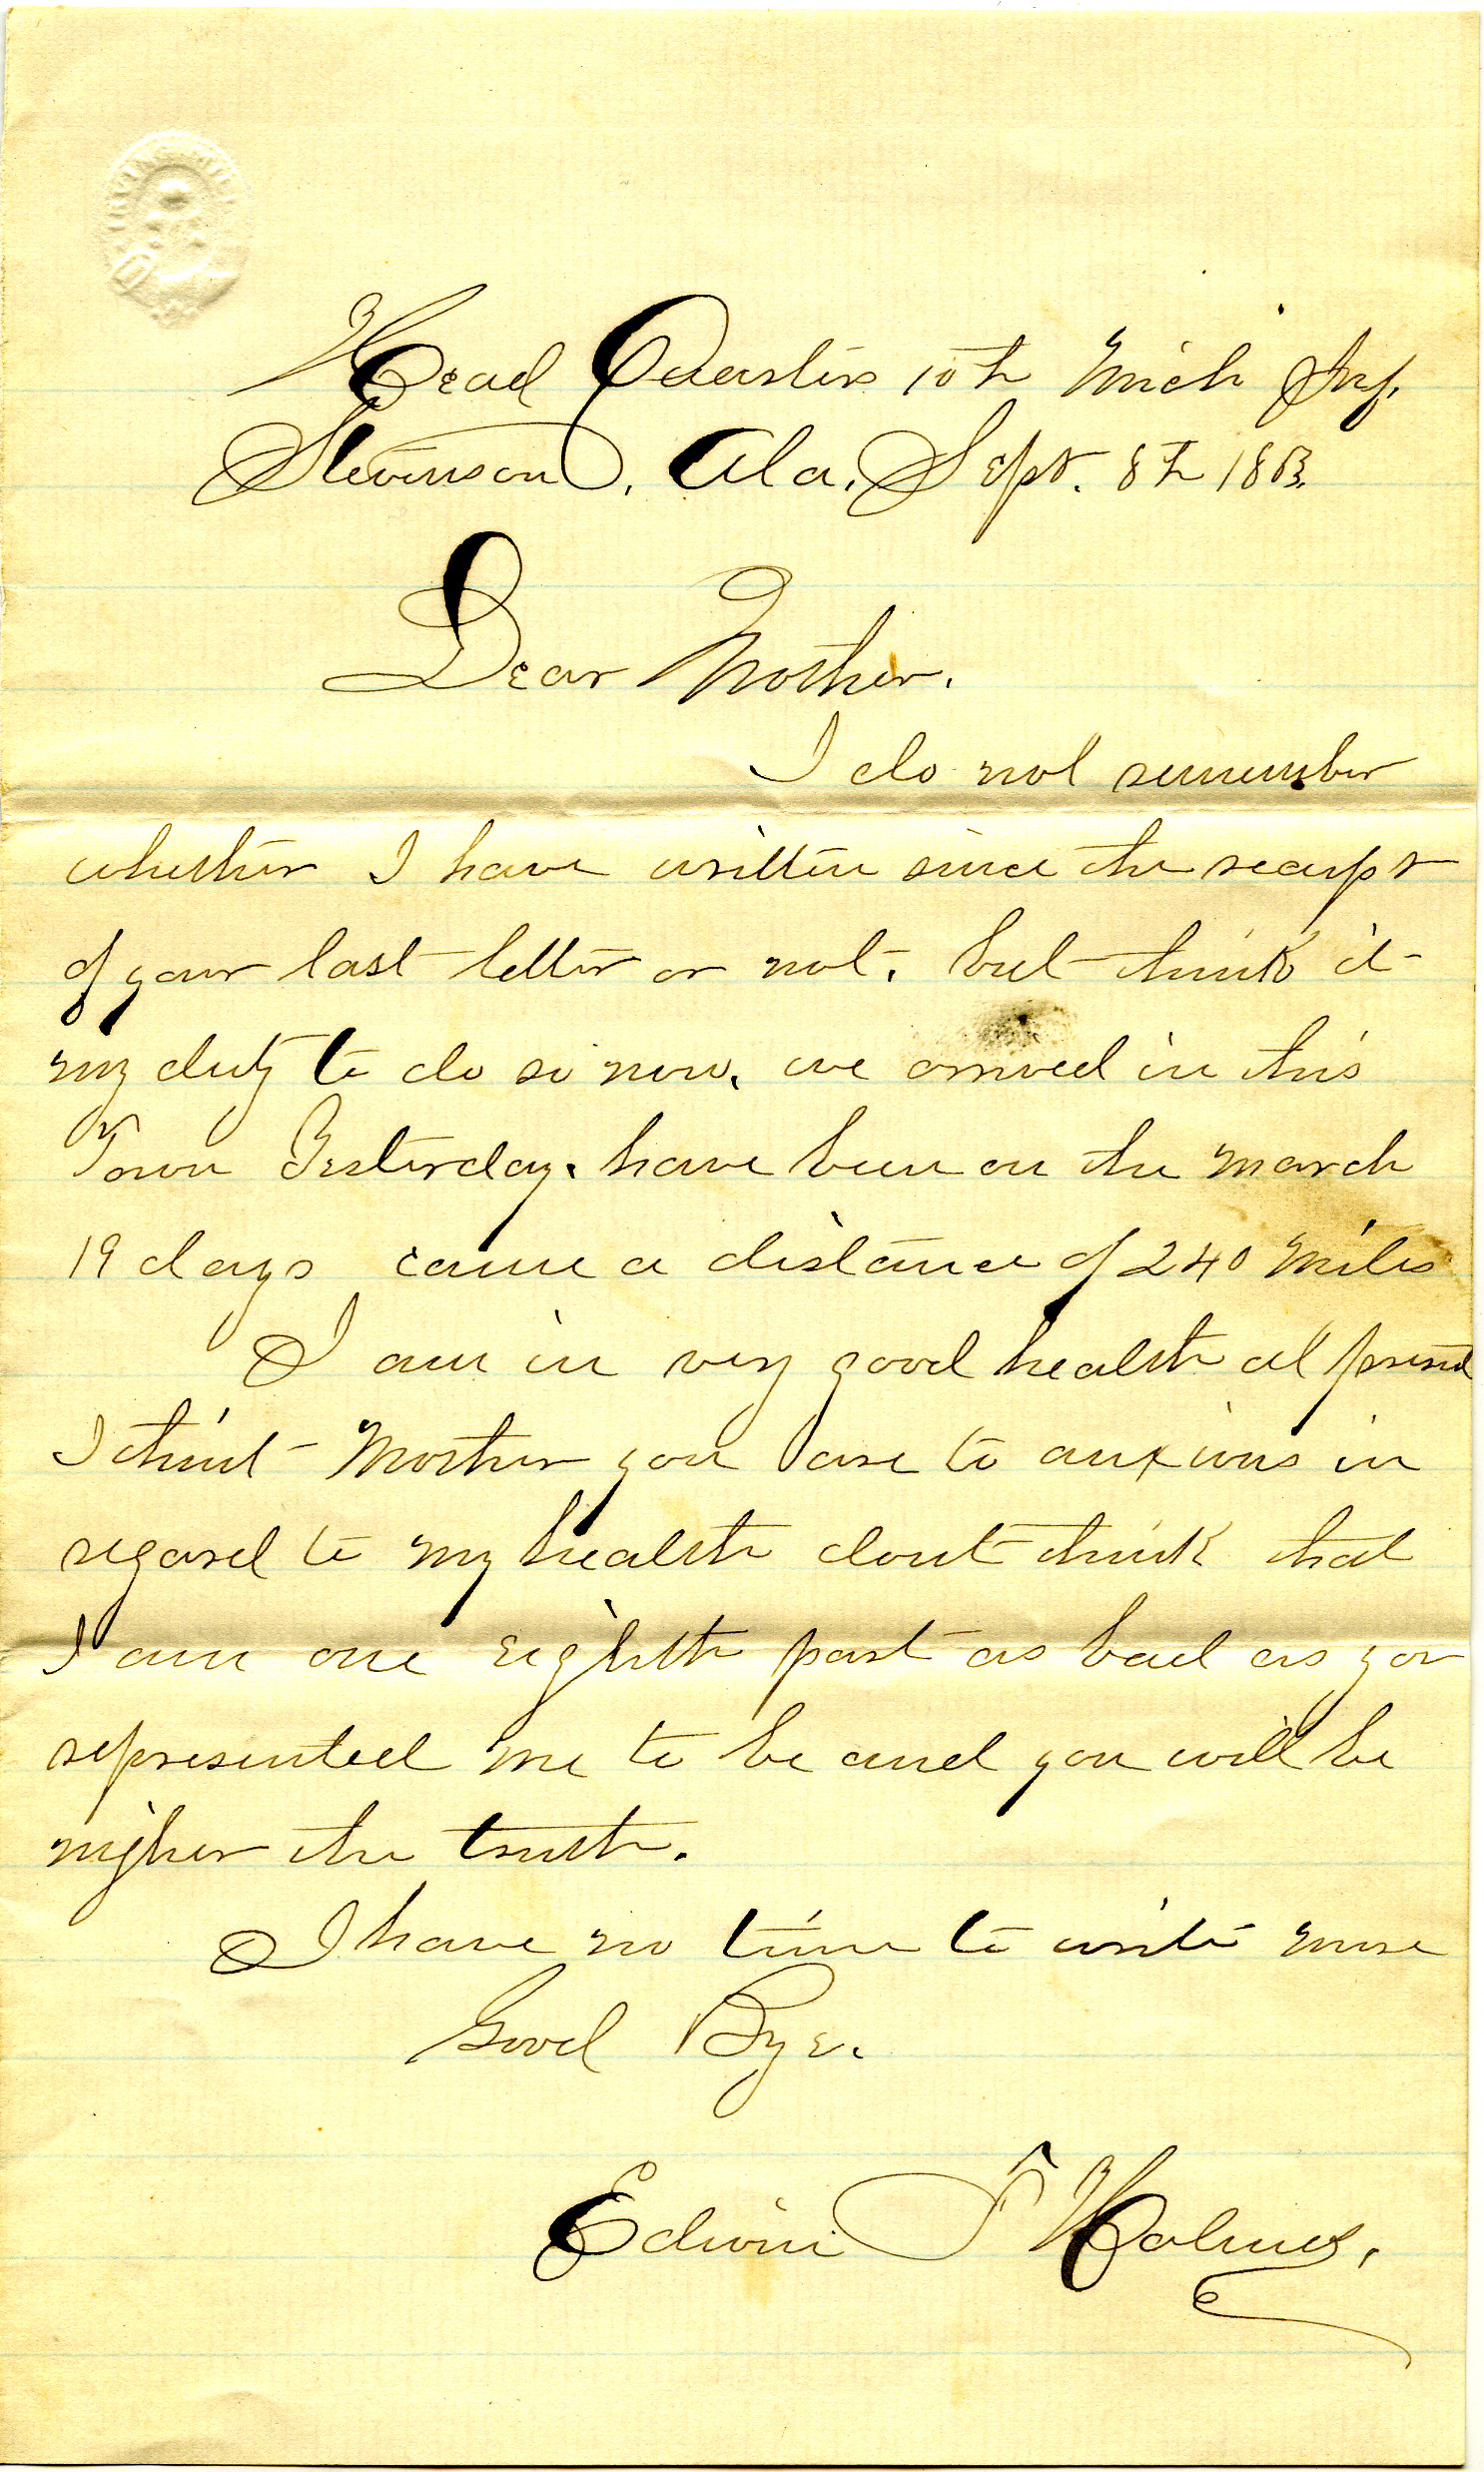 Head Quarters 10th Mich Inf.
Stevenson, Ala. Sept. 8th 1863.
Dear Mother.
I do not remember
whether I have written since the receipt
of your last letter or not. but think it
my duty to do so now. we arrived in this
Town Yesterday. have been on the march
19 days came a distance of 240 miles
I am in very good health at present
I think Mother you are to anxious in
regard to my health dont think that
I am one eighth part as bad as you
represented me to be and you will be
nigher the truth.
I have no time to write more
Good Bye.
Edwin F Holmes.